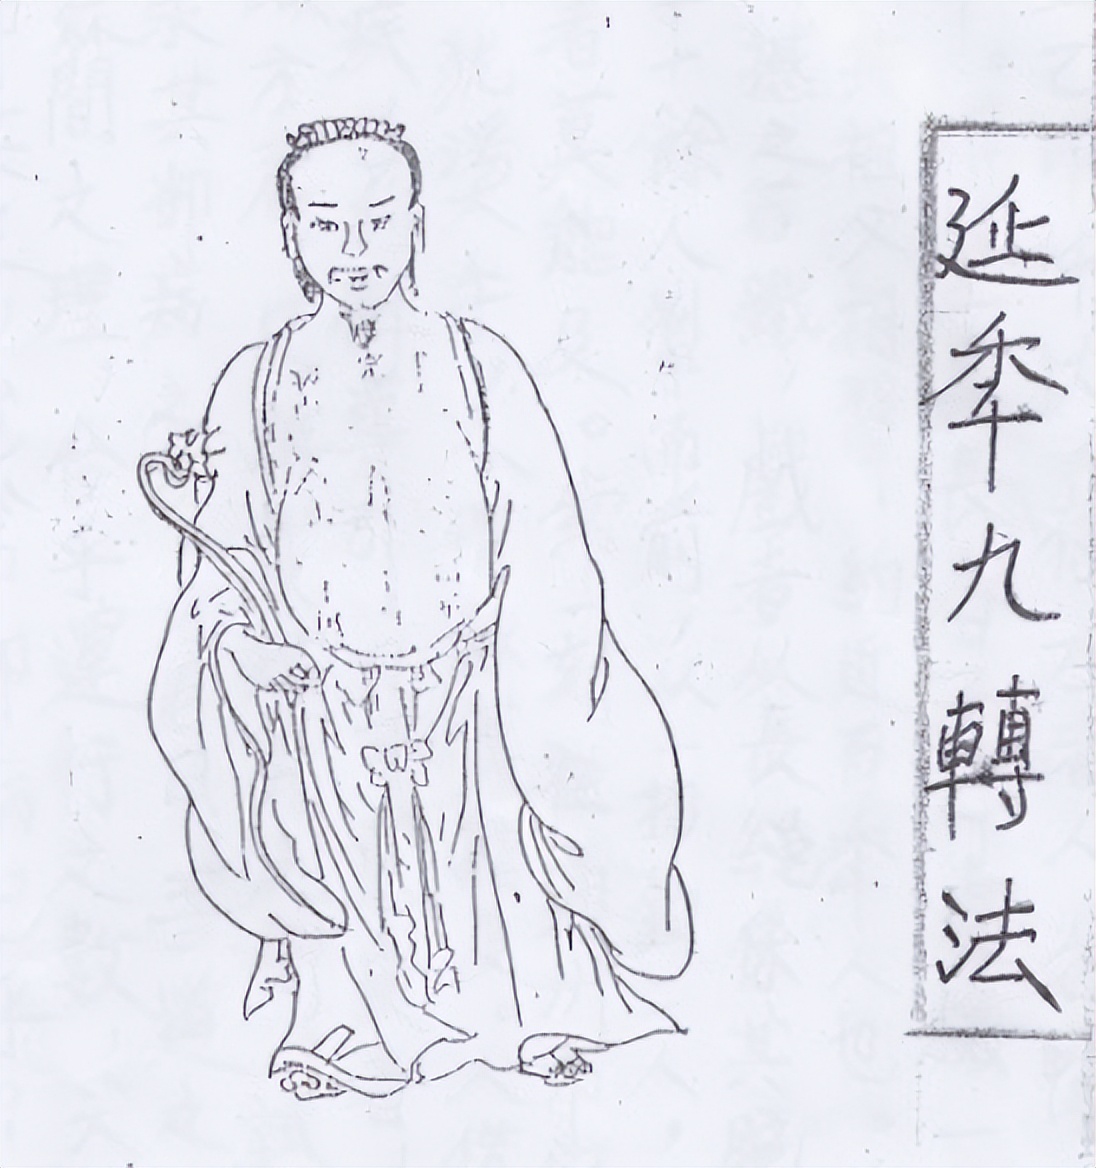 延秊九轉法